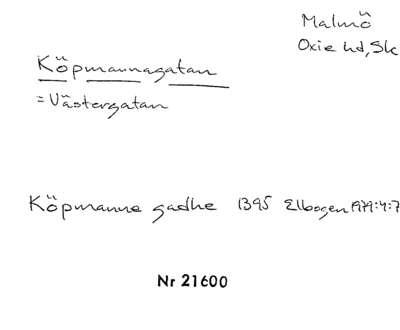 Malmö
Oxie hd, Sk
Köpmannagatan
= Västergatan
Köpmanne gadhe 1395 Elbogen 1979:4:7
Nr 21600